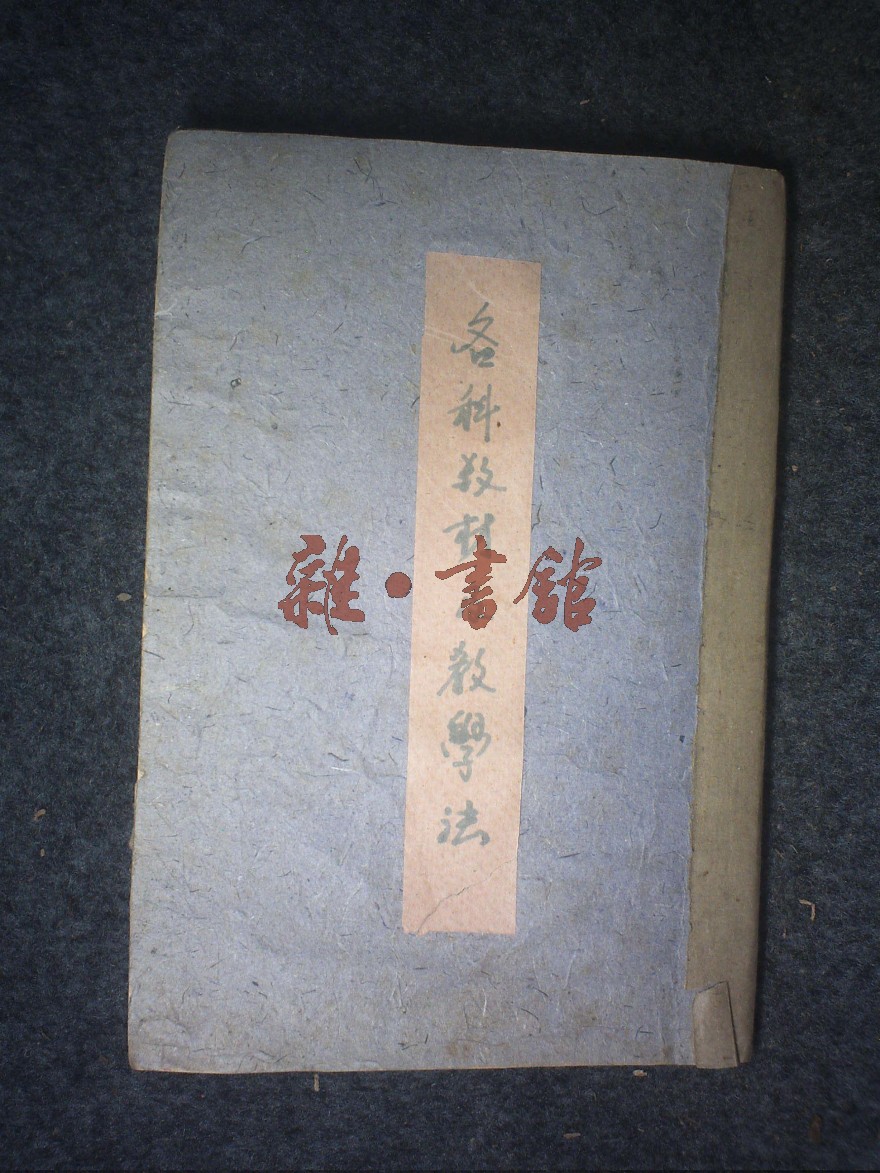 各科教材
教學法
雜·書館